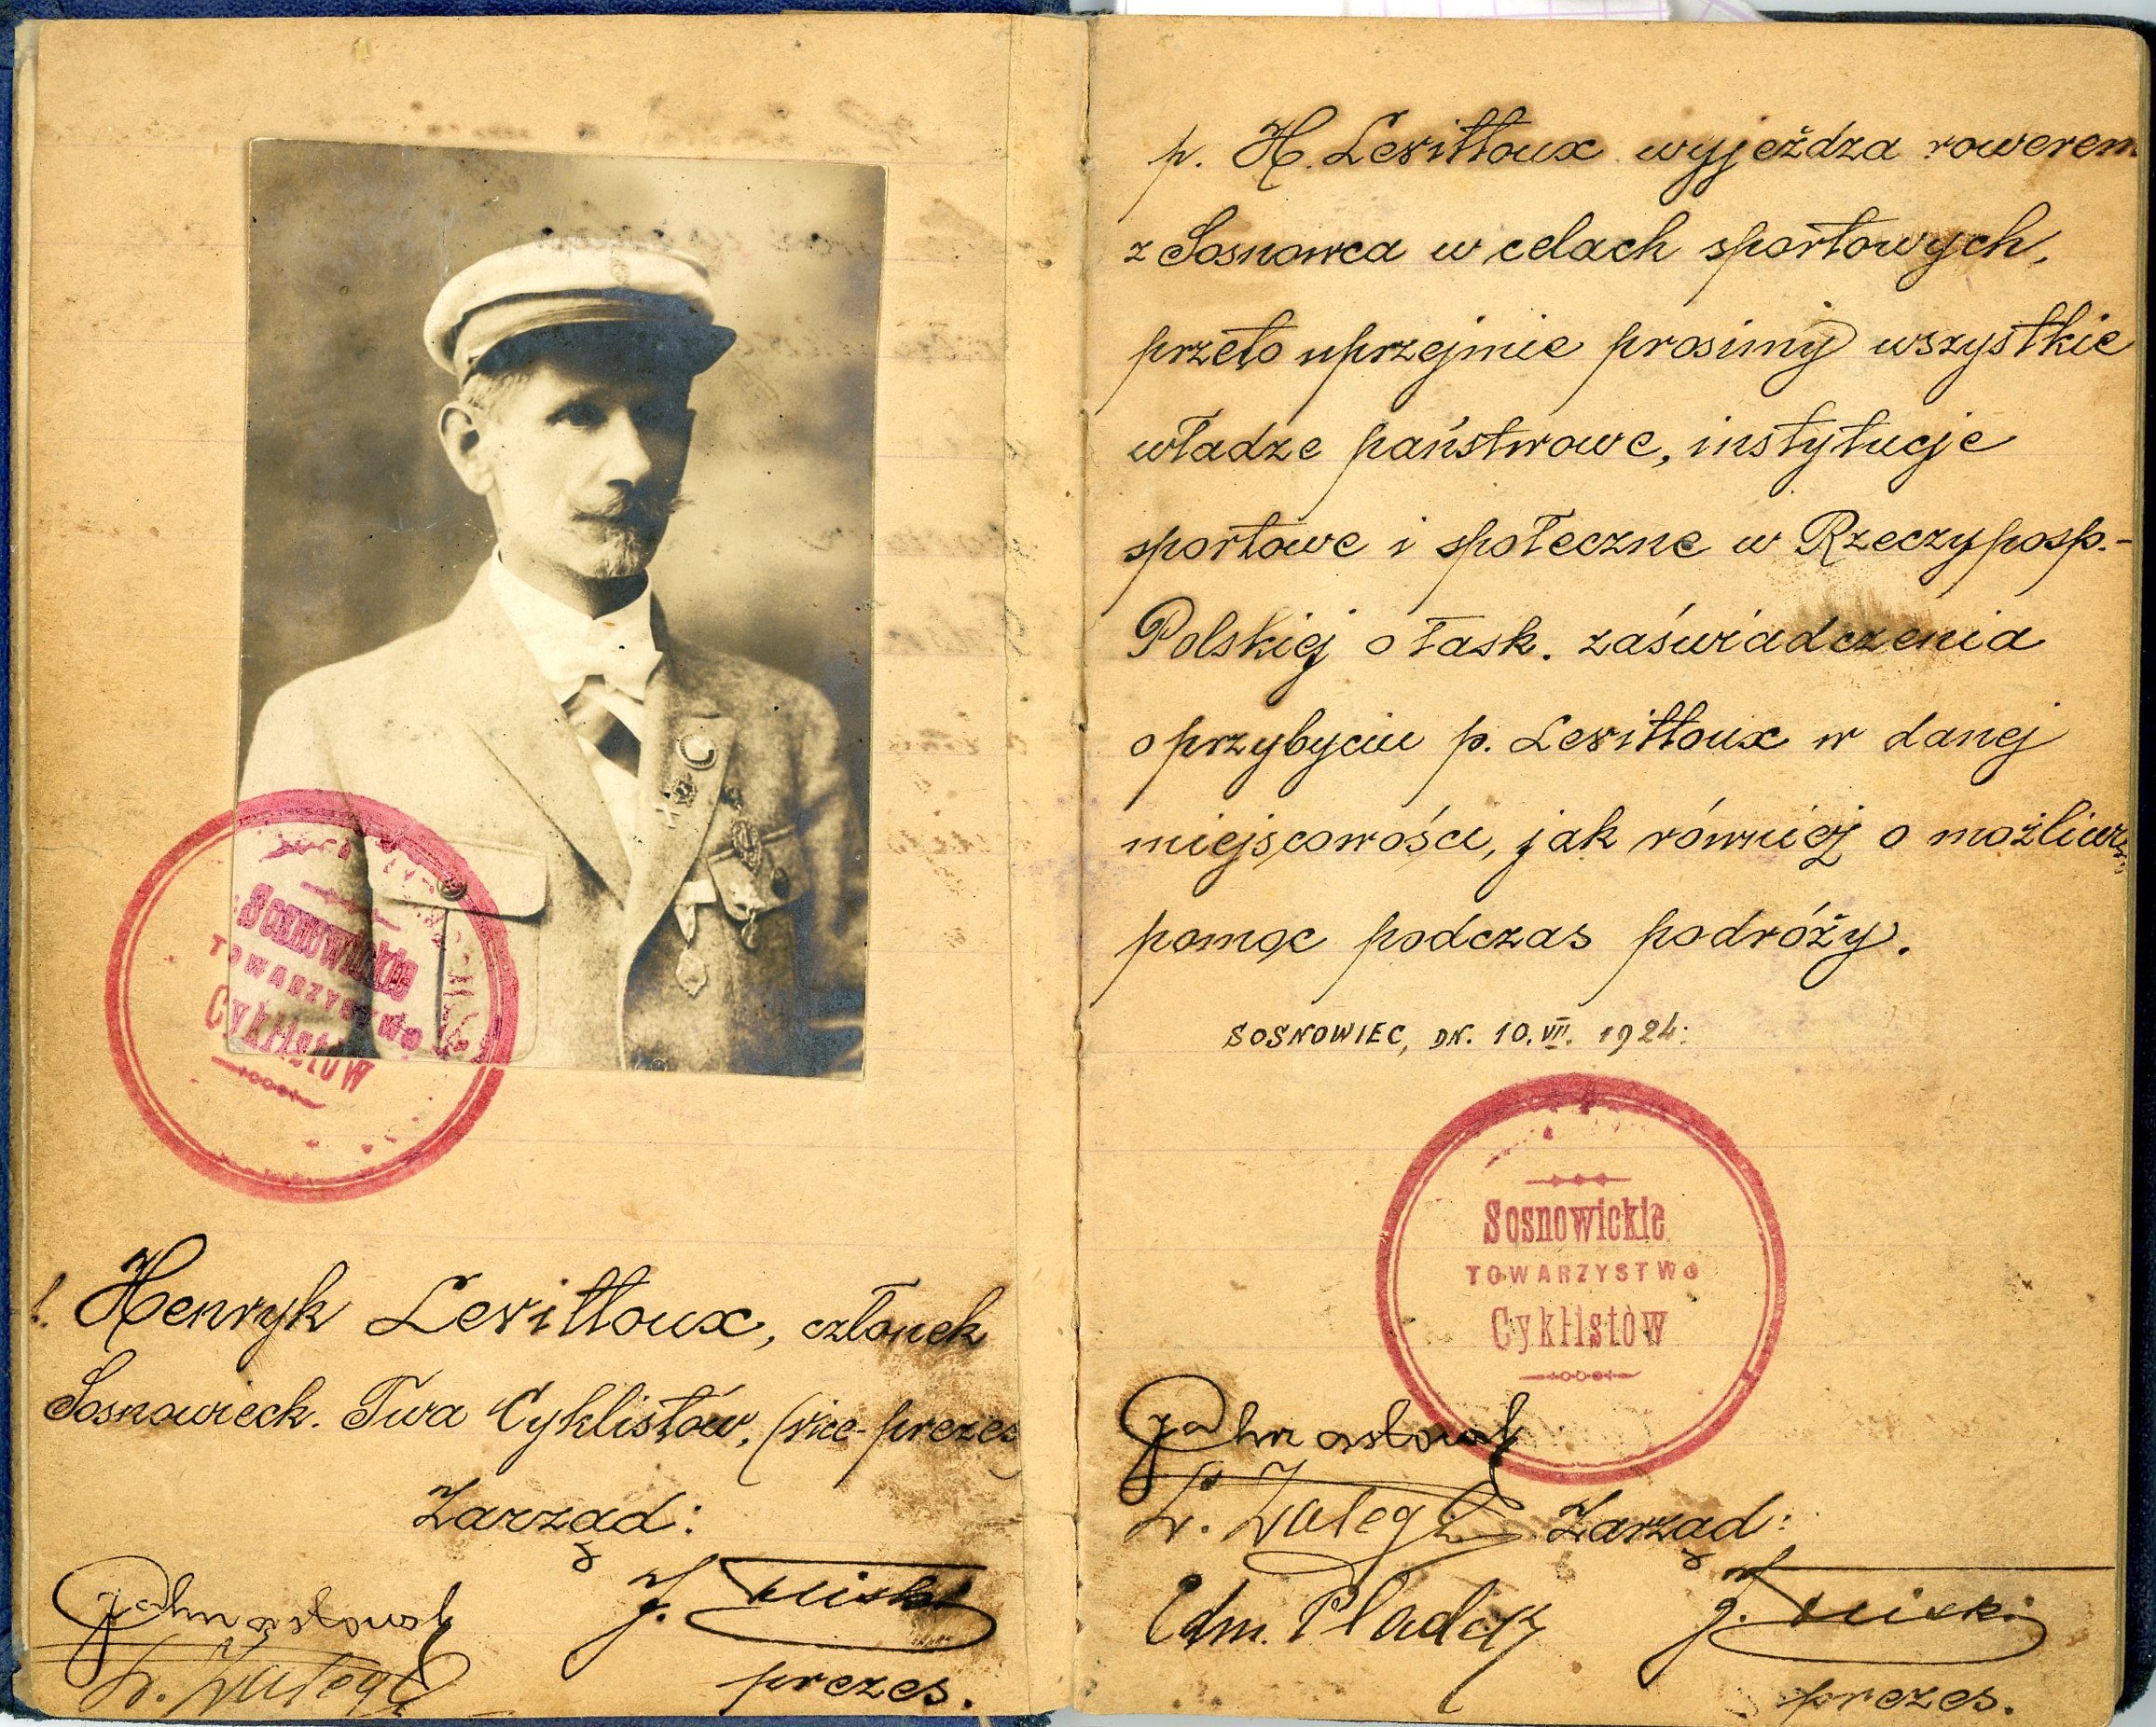 Sosnowickie
TOWARZYSTWO
Cyklistów
p. Henryk Levittoux, członek
Sosnowieck. Twa Cyklistów, (vice-prezes
Zarząd:
J.
prezes.
p. H. Levittoux wyjeżdza rowerem
z Sosnowca w celach sportowych,
przeto uprzejmie prosimy wszystkie
władze państwowe, instytucje
sportowe i społeczne w Rzeczyposp.-
Polskiej o łask. zaświadczenia
o przybyciu p. Levittoux w danej
miejscowości, jak również o możliwą
pomoc podczas podróży.
SOSNOWIEC, DN. 10. VII. 1924:
Sosnowickie
TOWARZYSTWO
Cyklistów
Zarząd:
Edm.
J.
prezes.